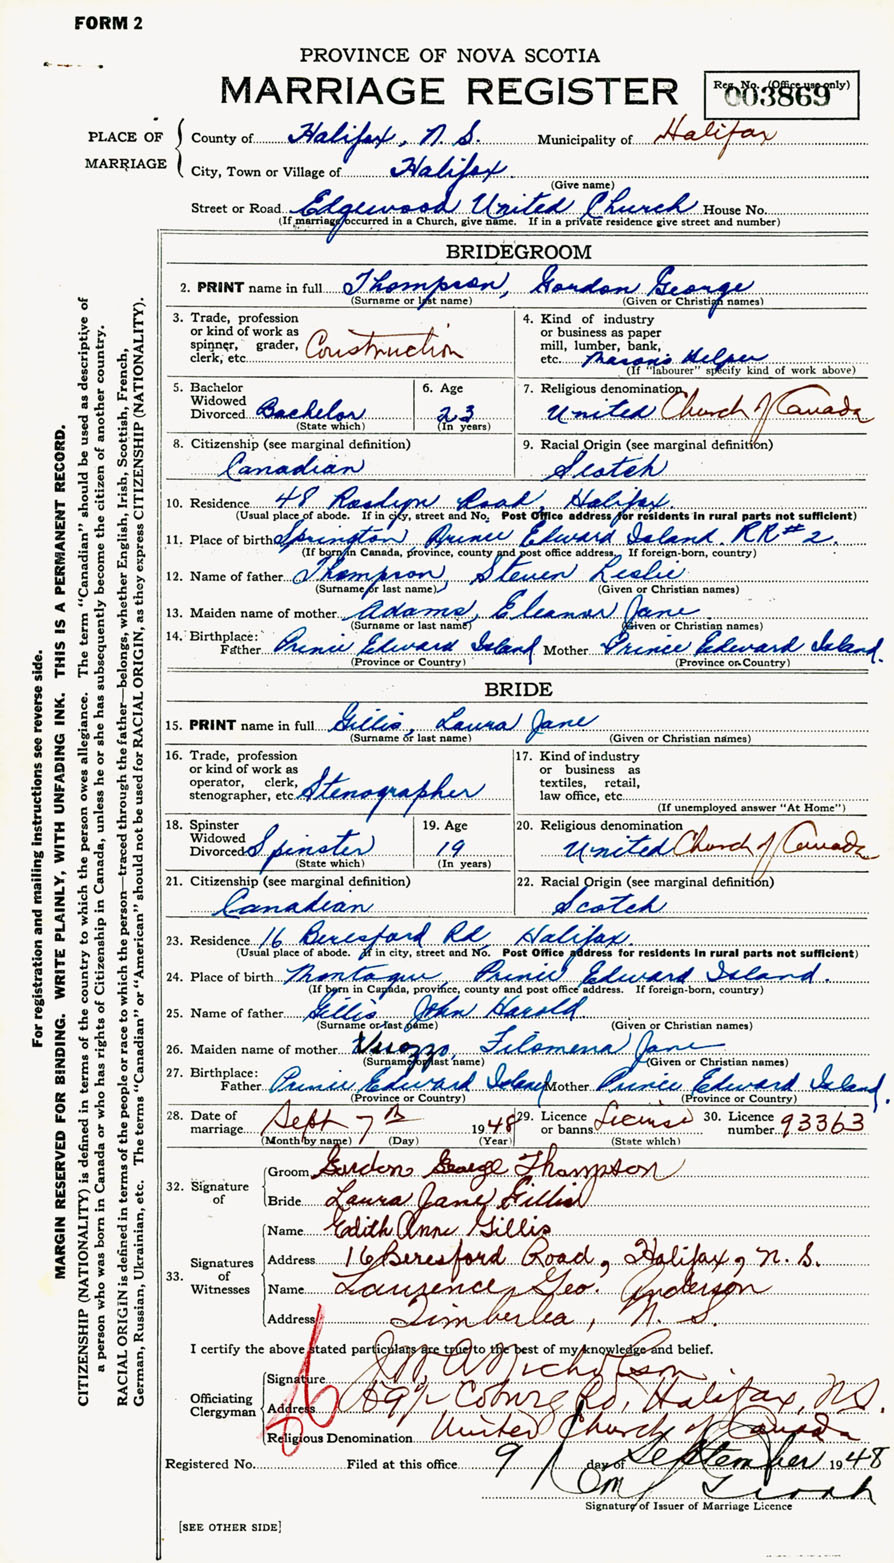 FORM 2
PROVINCE OF NOVA SCOTIA
MARRIAGE REGISTER
Reg. No. (Office use only)
003869
PLACE OF MARRIAGE
County of Halifax, N. S. Municipality of Halifax
City, Town or Village of Halifax
(Give name)
Street or Road Edgewood United Church House No.
(If marriage occurred in a Church, give name. If in a private residence give street and number)
BRIDEGROOM
2. PRINT name in full Thompson, Gordon George
(Surname or last name) (Given or Christian names)
3. Trade, profession or kind of work as spinner, grader, clerk, etc. Construction
4. Kind of industry or business as paper mill, lumber, bank, etc. Mason's Helper
(If "labourer" specify kind of work above)
5. Bachelor Widowed Divorced Bachelor
(State which)
6. Age 23
(In years)
7. Religious denomination United Church of Canada
8. Citizenship (see marginal definition) Canadian
9. Racial Origin (see marginal definition) Scotch
10. Residence 48 Roslyn Road, Halifax
(Usual place of abode. If in city, street and No. Post Office address for residents in rural parts not sufficient)
11. Place of birth Springton Prince Edward Island. RR#2.
(If born in Canada, province, county and post office address. If foreign-born, country)
12. Name of father Thompson, Steven Leslie
(Surname or last name) (Given or Christian names)
13. Maiden name of mother Adams, Eleanor Jane
(Surname or last name) (Given or Christian names)
14. Birthplace: Father Prince Edward Island Mother Prince Edward Island.
(Province or Country) (Province or Country)
BRIDE
15. PRINT name in full Gillis, Laura Jane
(Surname or last name) (Given or Christian names)
16. Trade, profession or kind of work as operator, clerk, stenographer, etc. Stenographer
17. Kind of industry or business as textiles, retail, law office, etc.
(If unemployed answer "At Home")
18. Spinster Widowed Divorced Spinster
(State which)
19. Age 19
(In years)
20. Religious denomination United Church of Canada
21. Citizenship (see marginal definition) Canadian
22. Racial Origin (see marginal definition) Scotch
23. Residence 16 Beresford Rd, Halifax.
(Usual place of abode. If in city, street and No. Post Office address for residents in rural parts not sufficient)
24. Place of birth Montague, Prince Edward Island.
(If born in Canada, province, county and post office address. If foreign-born, country)
25. Name of father Gillis, John Harold
(Surname or last name) (Given or Christian names)
26. Maiden name of mother Filomena Jane
(Surname or last name) (Given or Christian names)
27. Birthplace: Father Prince Edward Island Mother Prince Edward Island.
(Province or Country) (Province or Country)
28. Date of marriage Sept 7th 1948
(Month by name) (Day) (Year)
29. Licence or banns License
(State which)
30. Licence number 93363
32. Signature of
Groom Gordon George Thompson
Bride Laura Jane Gillis
33. Signatures of Witnesses
Name Edith Anne Gillis
Address 16 Beresford Road, Halifax, N. S.
Name Laurence Geo. Anderson
Address Timberlea, N. S.
I certify the above stated particulars are true to the best of my knowledge and belief.
Officiating Clergyman
Signature Nicholson
Address Coburg Rd, Halifax, NS.
Religious Denomination United Church of Canada
Registered No. Filed at this office 9 day of September 1948
Signature of Issuer of Marriage Licence
[SEE OTHER SIDE]
For registration and mailing instructions see reverse side.
MARGIN RESERVED FOR BINDING. WRITE PLAINLY, WITH UNFADING INK. THIS IS A PERMANENT RECORD.
CITIZENSHIP (NATIONALITY) is defined in terms of the country to which the person owes allegiance. The term "Canadian" should be used as descriptive of
a person who was born in Canada or who has rights of Citizenship in Canada, unless he or she has subsequently become the citizen of another country.
RACIAL ORIGIN is defined in terms of the people or race to which the person—traced through the father—belongs, whether English, Irish, Scottish, French,
German, Russian, Ukrainian, etc. The terms "Canadian" or "American" should not be used for RACIAL ORIGIN, as they express CITIZENSHIP (NATIONALITY).